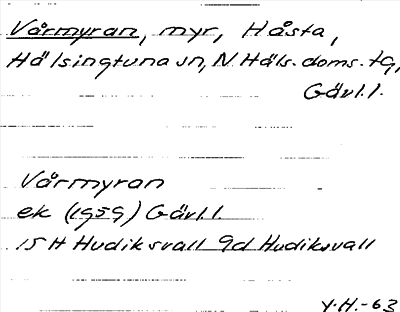 Vårmyran, myr, Håsta,
Hälsingtuna sn, N Häls. doms. tg,
Gävl. l.
Vårmyran
ek (1959) Gävl. l.
15H Hudiksvall 9d Hudiksvall
Y.H.-63